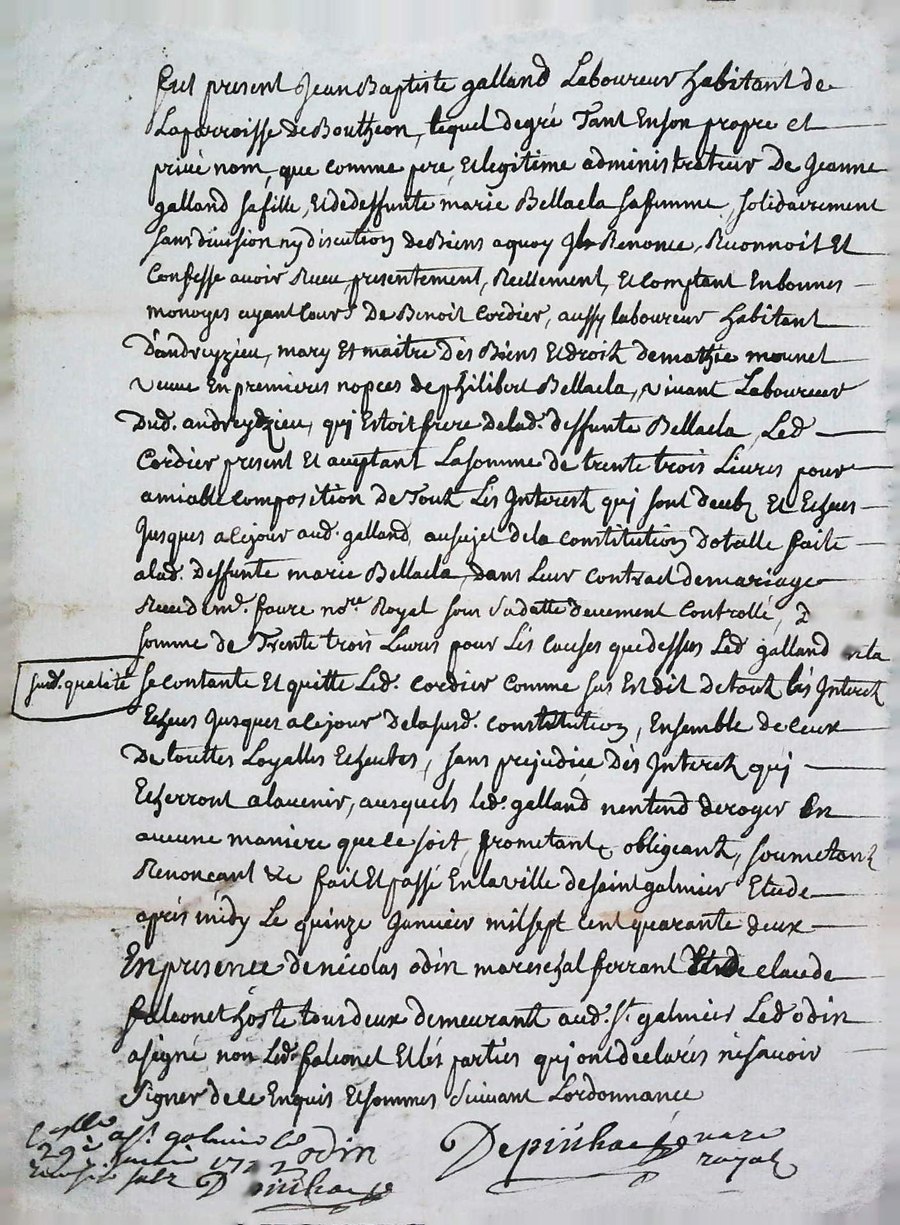 fut present Jean Baptiste galland Laboureur habitant de
Laparroisse de Boutheon, lequel degré Tant Enson propre et
privé nom, que comme pere, et legitime administrateur De Jeanne
galland safille, Et dedeffunte marie Bellacla safemme, solidairement
sans division ny discution de Biens aquoy Il Renonce, Reconnoit Et
Confesse avoir Receu presentement, Reellement, Et comptant Enbonnes
monoyes ayant Cours De Benoit Cordier, aussy laboureur habitant
D'andreyzieu, mary Et maitre Dès Biens Et droits demathie mounet
veuve Enpremieres nopces de philibert Bellacla, vivant Laboureur
Dud. andreydzieu, qui Estoit frere delad. deffunte Bellacla, Led
Cordier present Et aceptant Lasomme de trente trois Livres pour
amiable composition de Touts Lès Interests qui sont deubs Et Echeus
Jusques acejour aud. galland, ausujet dela constitution dotalle faite
alad. deffunte marie Bellacla, dans Leur contract demariage
Receu dem.e faure no.re Royal sous sadatte deuement Controllé, 2
somme de Trente trois Livres pour Lès Causes quedessus Led galland et la
sud. qualité
se contante Et quitte Led. Cordier Comme sus Est dit detouts lès Interets
Echeus Jusques acejour delasusd. constitution, Ensemble de ceux
De touttes Loyalles Echeutes, sans prejudice Dès Interets qui
Echerront alavenir, ausquels led. galland nentend deroger En
aucune maniere que ce soit, prometants, obligeants, soumetants
Renonçant &c fait Et passé Enlaville desaint galmier Etude
après midy Le quinze Janvier milsept cent quarante deux
Enpresence de nicolas odin mareschal ferrant Et de claude
falconet hoste tous deux demeurant aud. St. galmier Led odin
asigné non Led. falconet Et lès parties qui ont declarés nesavoir
signer dece Enquis Et sommes suivant Lordonnance
odin
Depinhac notaire
royal
a St. galmier le
29e janvier 1742